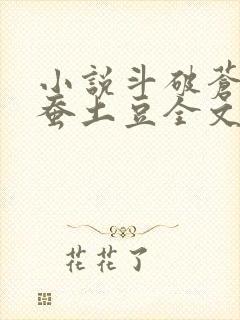 小説斗破蒼
蚕土豆全文
花花了